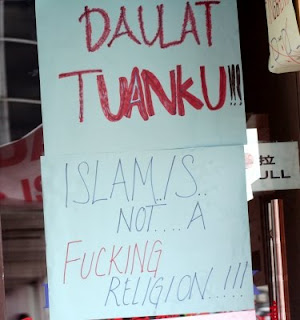 DAULAT
TUANKU!!!
ISLAM.IS..
NOT....A
FUCKING
RELIGION....!!!
拉
ULL